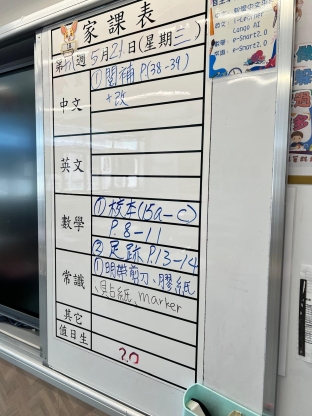 家課表
第十八週 5月21日(星期三)
中文
① 閱補 P.(38-39)
+改
英文
數學
① 校本(15a-c)
P.8-11
② 足跡 P.13-14
常識
① 明帶剪刀、膠紙
、貼紙、marker
其它
值日生
20
e-Smart2.0
Canva AI
e-Smart2.0